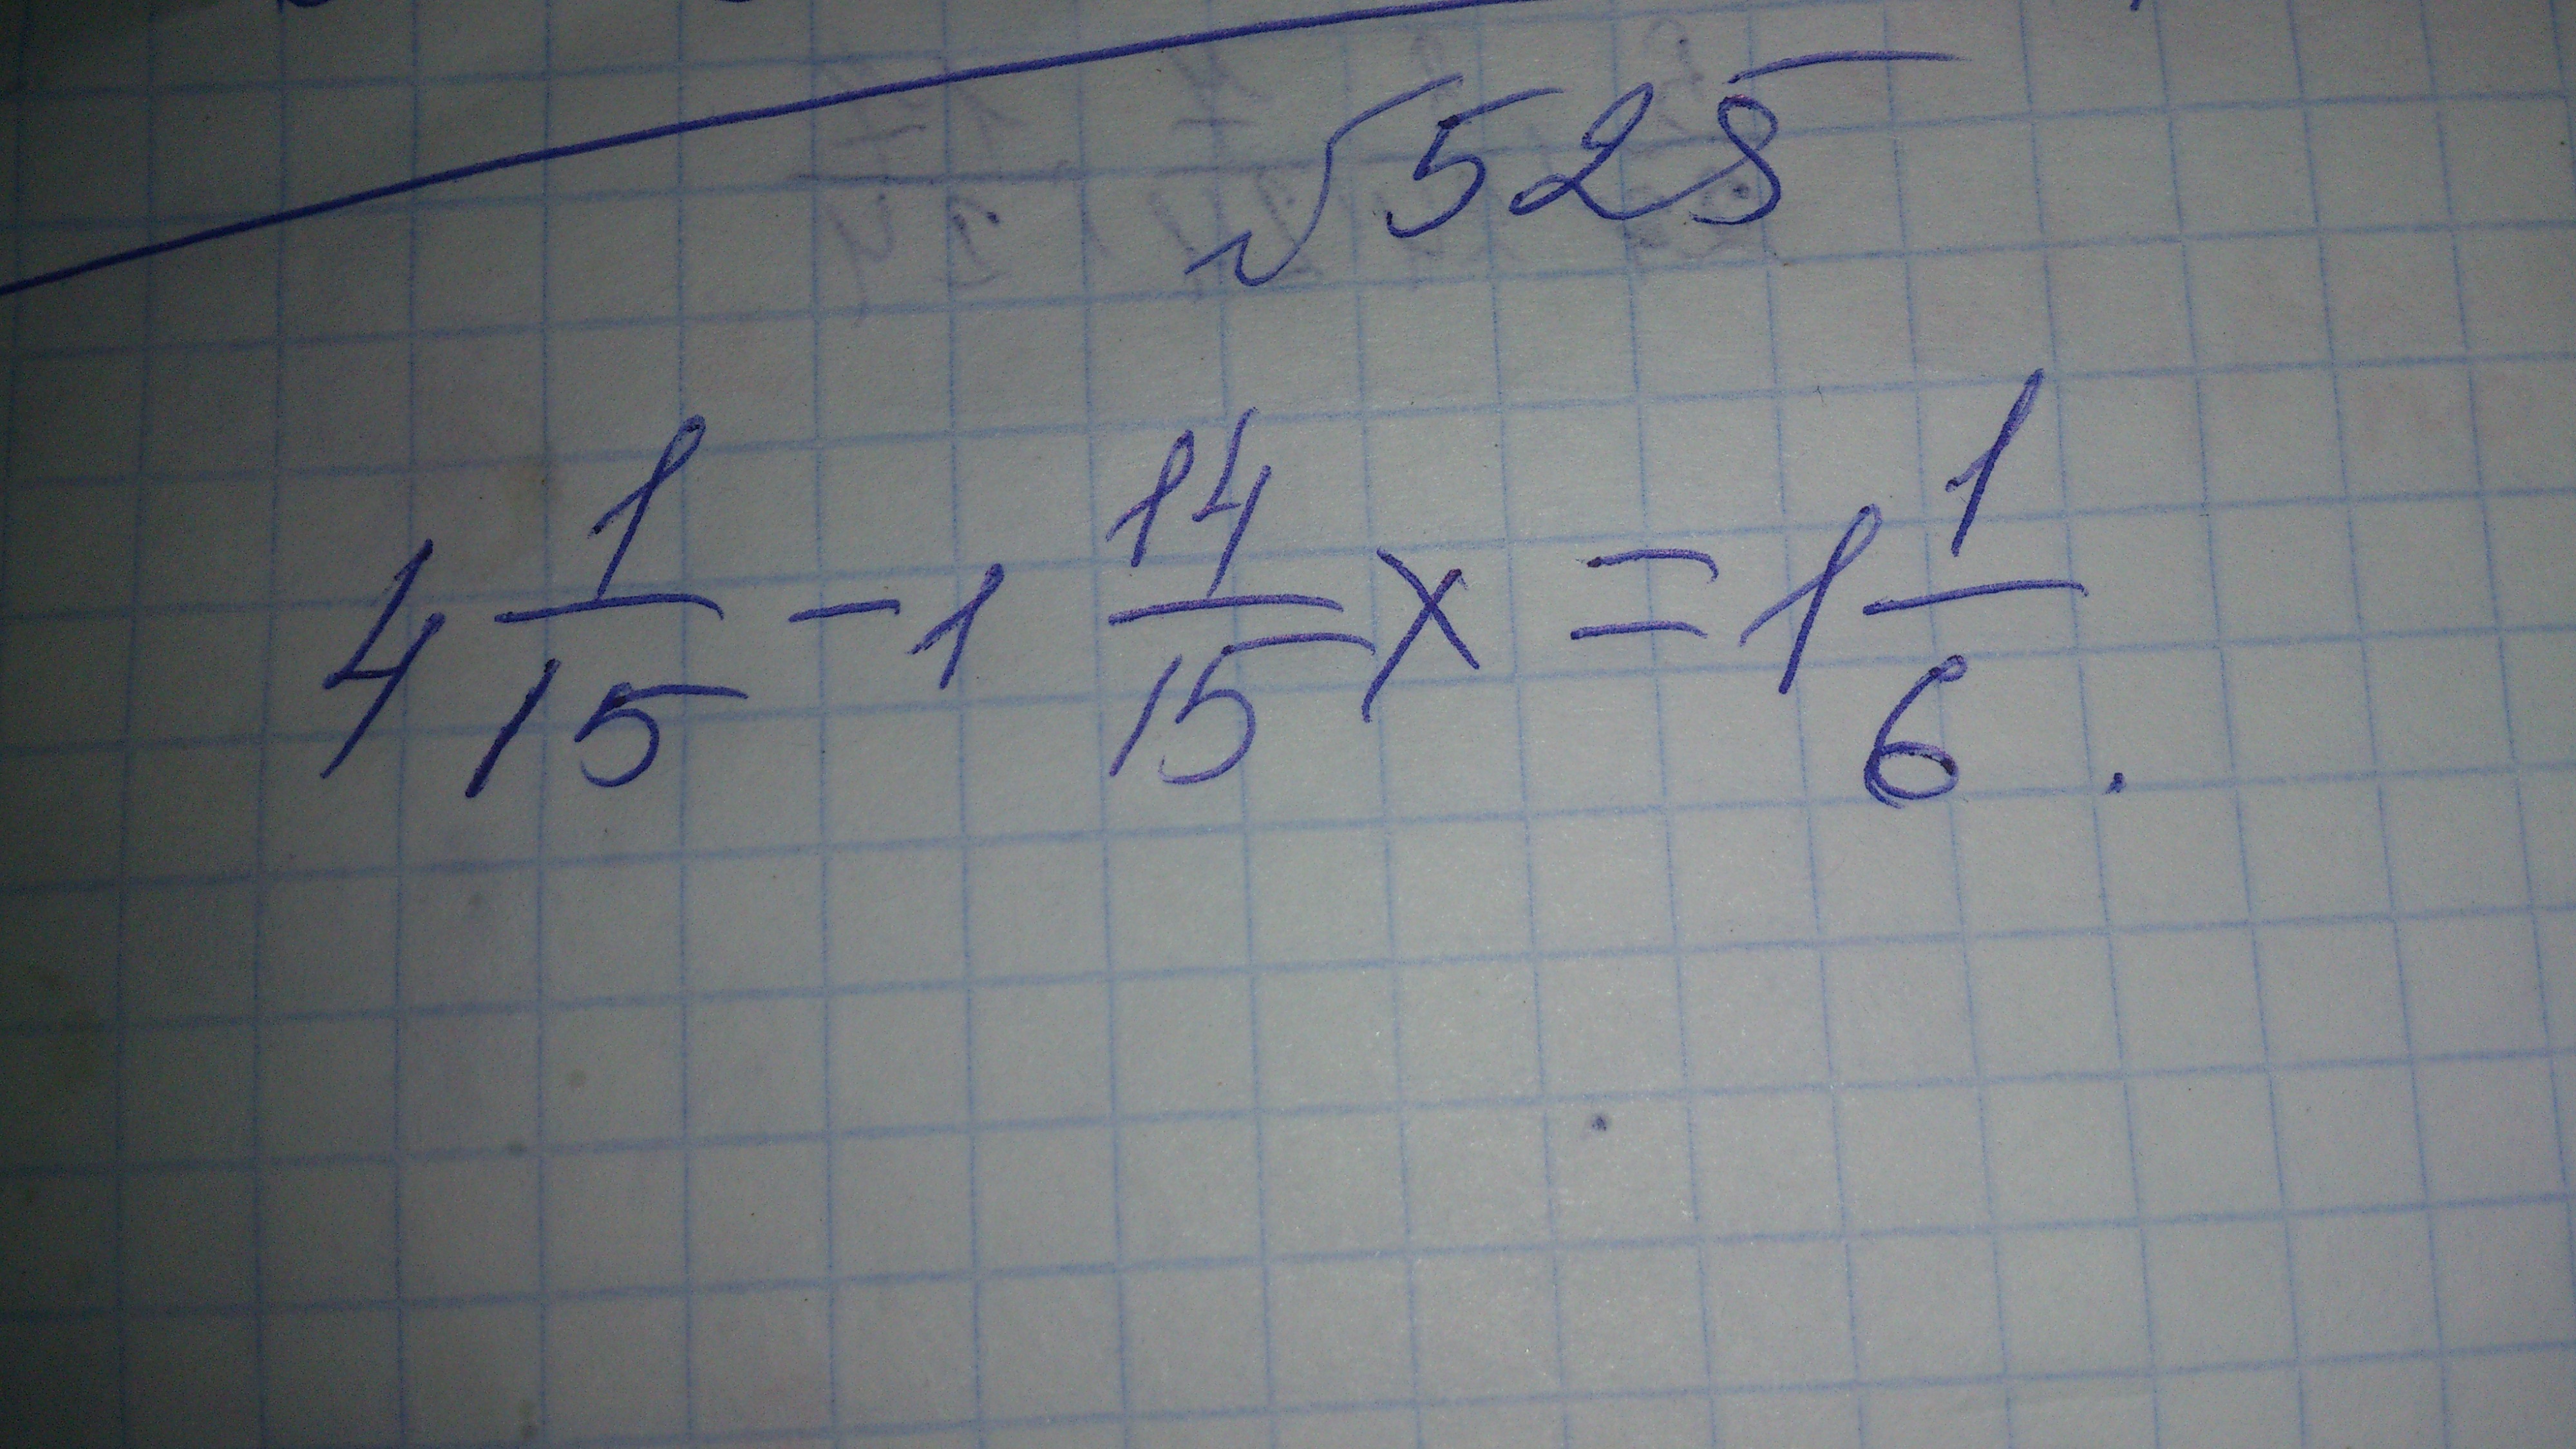 √525
4 1/15 - 1 14/15 x = 1 1/6 .